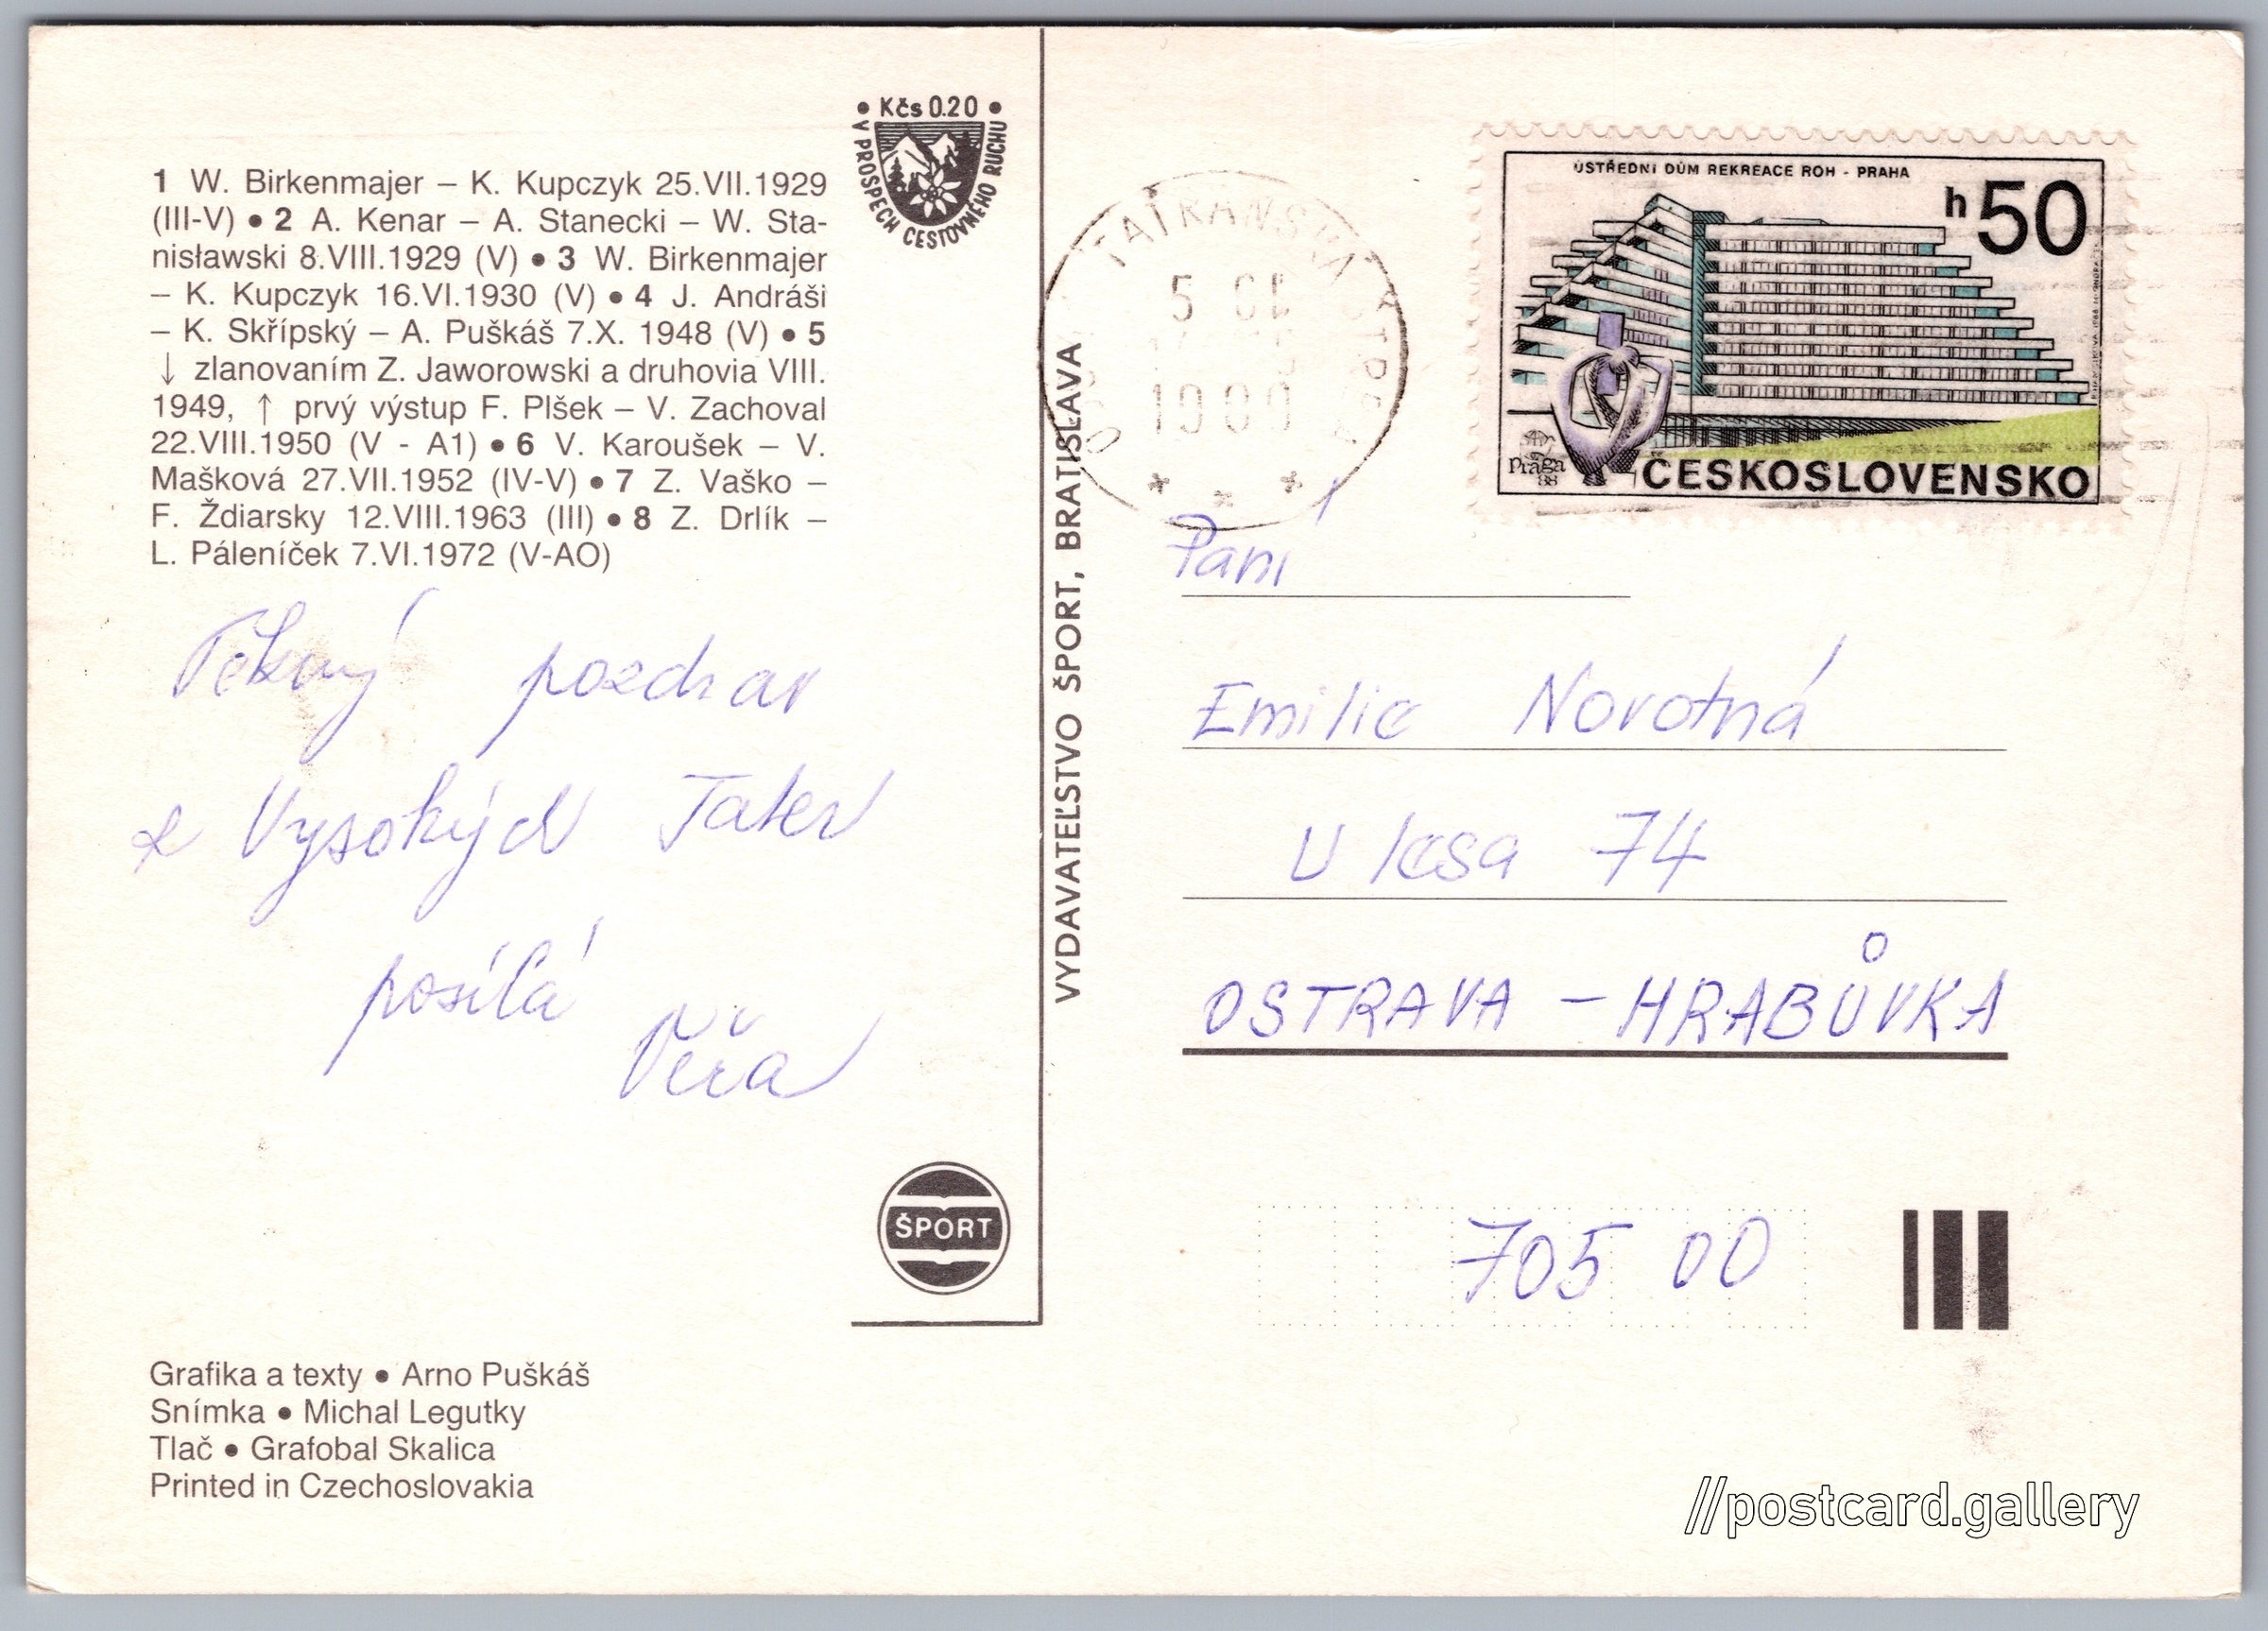 • Kčs 0.20 •
V PROSPECH CESTOVNÉHO RUCHU
1 W. Birkenmajer – K. Kupczyk 25.VII.1929
(III-V) • 2 A. Kenar – A. Stanecki – W. Sta-
nisławski 8.VIII.1929 (V) • 3 W. Birkenmajer
– K. Kupczyk 16.VI.1930 (V) • 4 J. Andráši
– K. Skřípský – A. Puškáš 7.X. 1948 (V) • 5
↓ zlanovaním Z. Jaworowski a druhovia VIII.
1949, ↑ prvý výstup F. Plšek – V. Zachoval
22.VIII.1950 (V - A1) • 6 V. Karoušek – V.
Mašková 27.VII.1952 (IV-V) • 7 Z. Vaško –
F. Ždiarsky 12.VIII.1963 (III) • 8 Z. Drlík –
L. Páleníček 7.VI.1972 (V-AO)
Pěkný pozdrav
z Vysokých Tater
posílá
Věra
ŠPORT
Grafika a texty • Arno Puškáš
Snímka • Michal Legutky
Tlač • Grafobal Skalica
Printed in Czechoslovakia
VYDAVATEĽSTVO ŠPORT, BRATISLAVA
TATRANSKÁ
5
ÚSTŘEDNÍ DŮM REKREACE ROH - PRAHA
h50
Praga
88
ČESKOSLOVENSKO
Paní
Emilie Novotná
U lesa 74
OSTRAVA – HRABŮVKA
705 00
//postcard.gallery